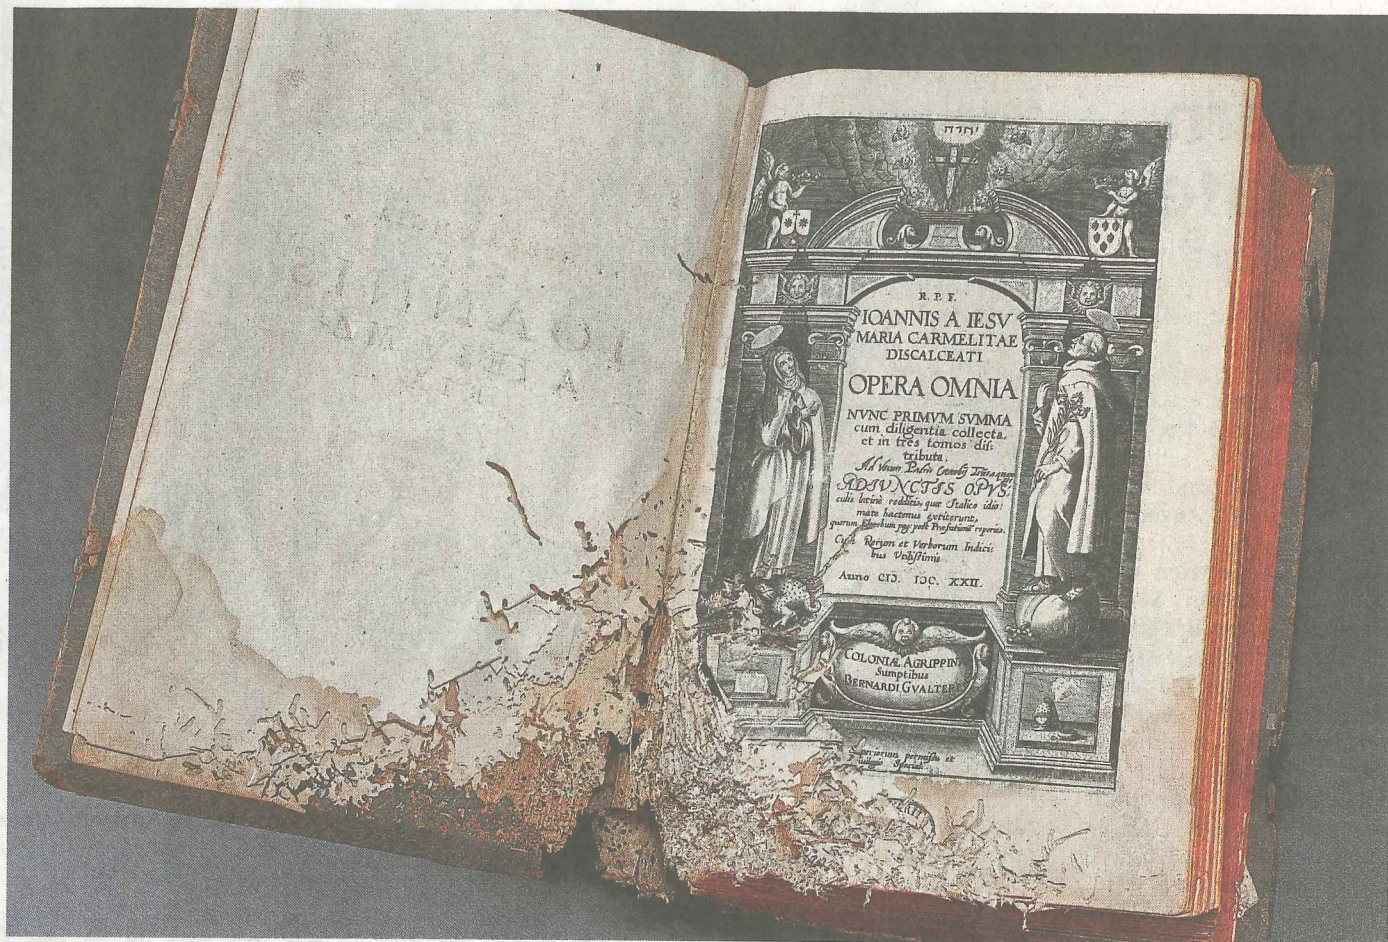 יהוה
R. P. F.
IOANNIS A IESV
MARIA CARMELITAE
DISCALCEATI
OPERA OMNIA
NVNC PRIMVM SVMMA
cum diligentia collecta,
et in tres tomos dis:
tributa.
ADIVNCTIS OPVS:
culis latinè redditis, quæ Italico idio:
mate hactenus extiterunt,
quorum post Præfationē reperies.
Cum Rerum et Verborum Indici:
bus Vtilissimis
Anno CIↃ. IↃC. XXII.
COLONIÆ AGRIPPINÆ
Sumptibus
BERNARDI GVALTERI
Superiorum permissu et